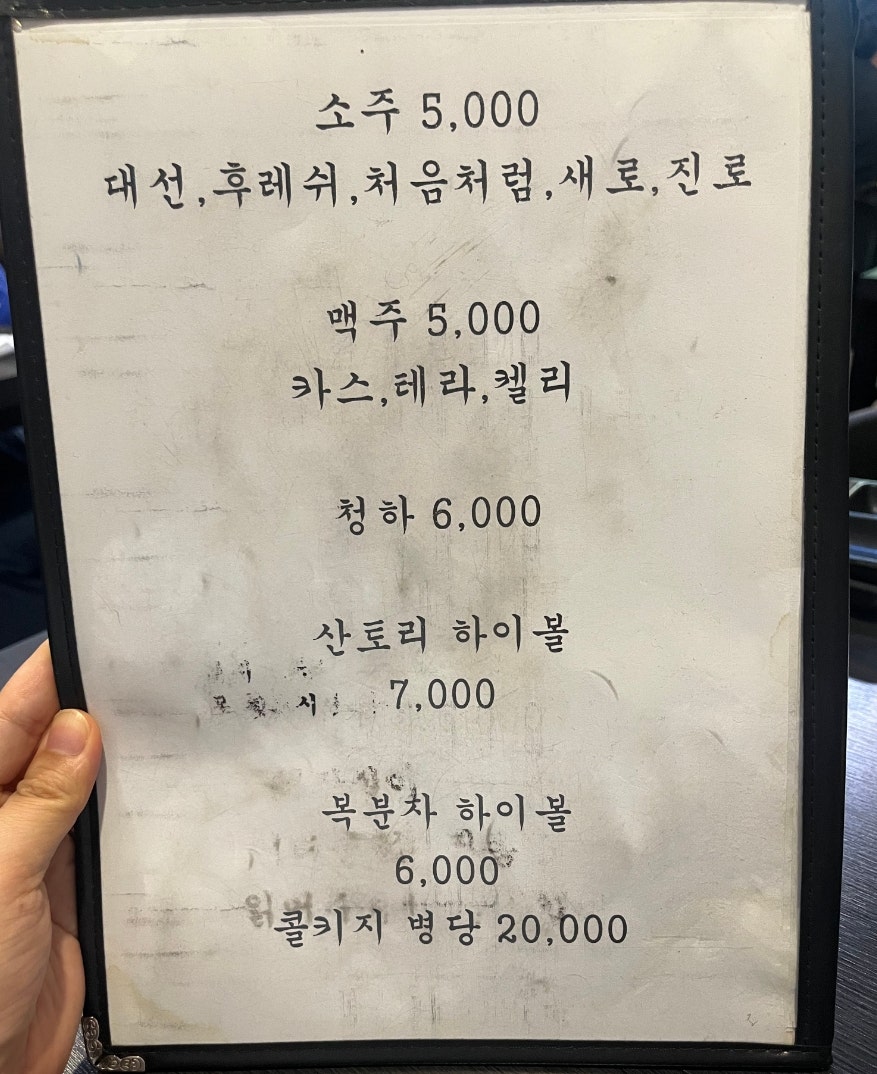 소주 5,000
대선,후레쉬,처음처럼,새로,진로
맥주 5,000
카스,테라,켈리
청하 6,000
산토리 하이볼
7,000
복분자 하이볼
6,000
콜키지 병당 20,000